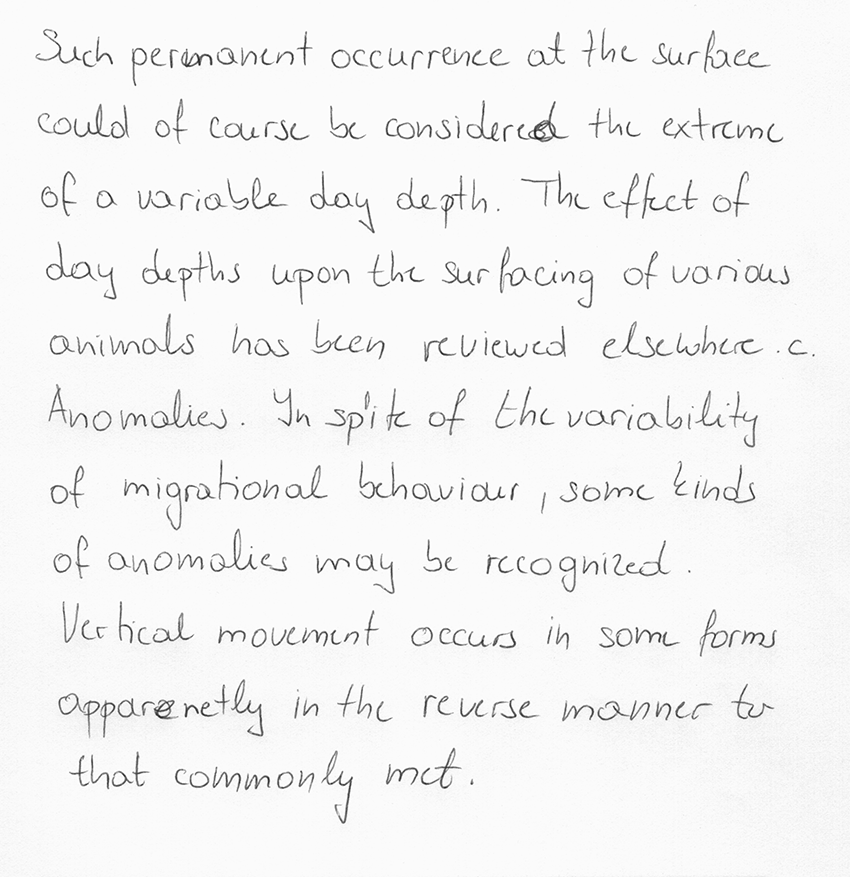 Such permanent occurrence at the surface
could of course be considered the extreme
of a variable day depth. The effect of
day depths upon the surfacing of various
animals has been reviewed elsewhere . c.
Anomalies. In spite of the variability
of migrational behaviour , some kinds
of anomalies may be recognized .
Vertical movement occurs in some forms
apparenetly in the reverse manner to
that commonly met .